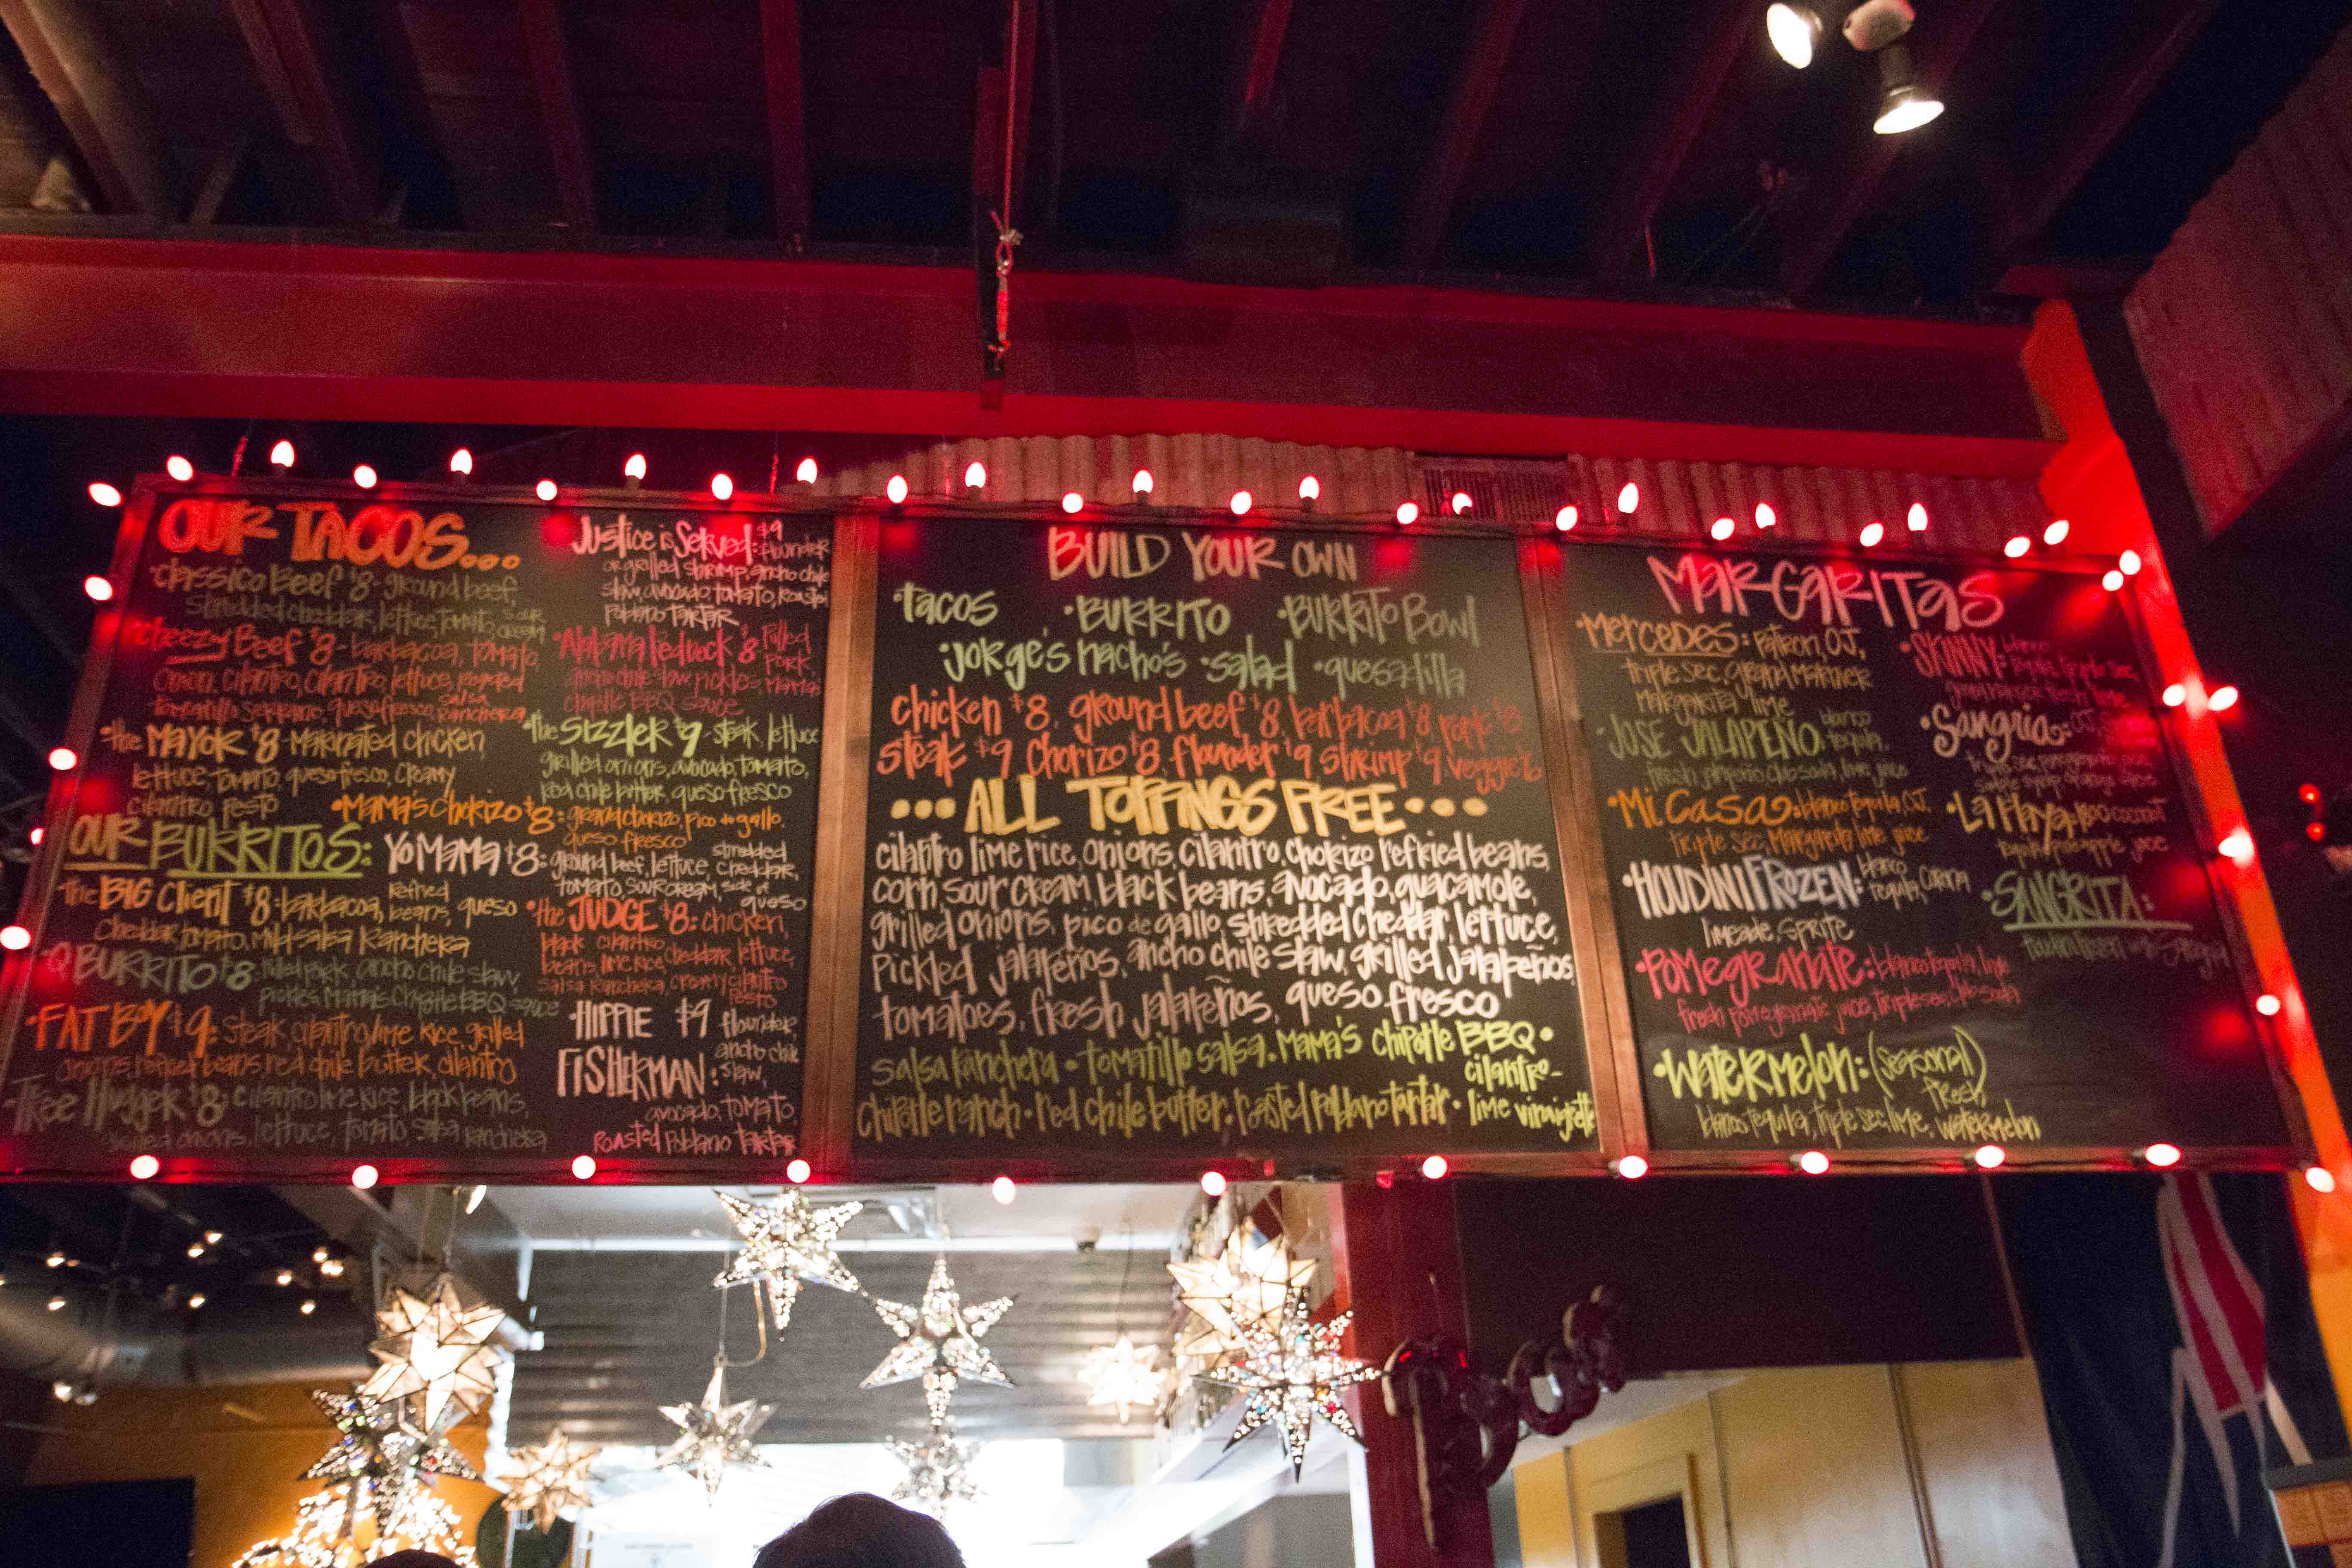 OUR TACOS...
Classico Beef $8- ground beef,
shredded cheddar, lettuce, tomato, sour cream
Cheezy Beef $8- barbacoa, tomato,
onion, cilantro, lettuce,
tomatillo serrano, queso fresco, salsa ranchera
•the MAYOR $8- Marinated chicken
lettuce, tomato, queso fresco, creamy
cilantro pesto
Justice is Served: $9 flounder
or grilled shrimp, ancho chile
slaw, avocado, tomato, roasted
poblano tartar
•Alabama Redneck $8 Pulled
pork,
ancho chile slaw, pickles, Mama's
chipotle BBQ sauce
•the Sizzler $9- steak, lettuce
grilled onions, avocado, tomato,
red chile butter, queso fresco
•Mama's Chorizo $8: ground chorizo, pico de gallo,
queso fresco
OUR BURRITOS:
the BIG Client $8- barbacoa, refried beans, queso
cheddar, tomato, mild salsa Ranchera
Q BURRITO $8 pulled pork, ancho chile slaw,
pickles, Mama's Chipotle BBQ sauce
•FAT BOY $9: steak, cilantro lime rice, grilled
onions, refried beans, red chile butter, cilantro
•Tree Hugger $8 cilantro lime rice, black beans,
grilled onions, lettuce, tomato, salsa ranchera
YO MAMA $8: ground beef, lettuce, shredded cheddar,
tomato, sour cream, side of
queso
•the JUDGE $8: chicken,
black beans, cilantro lime rice, cheddar, lettuce,
salsa Ranchera, creamy cilantro
pesto
•HIPPIE $9 flounder
FISHERMAN: ancho chile
slaw,
avocado, tomato,
roasted poblano tartar
BUILD YOUR OWN
•Tacos •BURRITO •BURRITO Bowl
•Jorge's nacho's •salad •quesadilla
chicken $8, ground beef $8, barbacoa $8, pork $8
steak $9 Chorizo $8, flounder $9 shrimp $9, veggie
...ALL TOPPINGS FREE...
cilantro lime rice, onions, cilantro, chorizo refried beans,
corn, sour cream, black beans, avocado, guacamole,
grilled onions, pico de gallo, shredded cheddar, lettuce,
pickled jalapeños, ancho chile slaw, grilled jalapeños,
tomatoes, fresh jalapeños, queso fresco
salsa Ranchera • tomatillo salsa • Mama's chipotle BBQ •
cilantro-
chipotle ranch • red chile butter • roasted poblano tartar • lime vinaigrette
MARGARITAS
•MERCEDES: Patron, O.J.,
triple sec, grand marnier
margarita lime
•JOSE JALAPEÑO: blanco
tequila,
fresh jalapeño, club soda, lime juice
•Mi Casa: blanco tequila, O.J.,
triple sec, Margarita lime juice
•HOUDINI FROZEN: blanco
tequila, Corona
limeade, Sprite
•POMEGRANATE: blanco tequila, lime
fresh pomegranate juice, triple sec, club soda
•WATERMELON: (seasonal)
fresh
blanco tequila, triple sec, lime, watermelon
•SKINNY: blanco
tequila, triple sec,
•Sangria: O.J.,
•LA PLAYA: coconut
tequila, pineapple juice
•SANGRITA:
houdini frozen with sangria